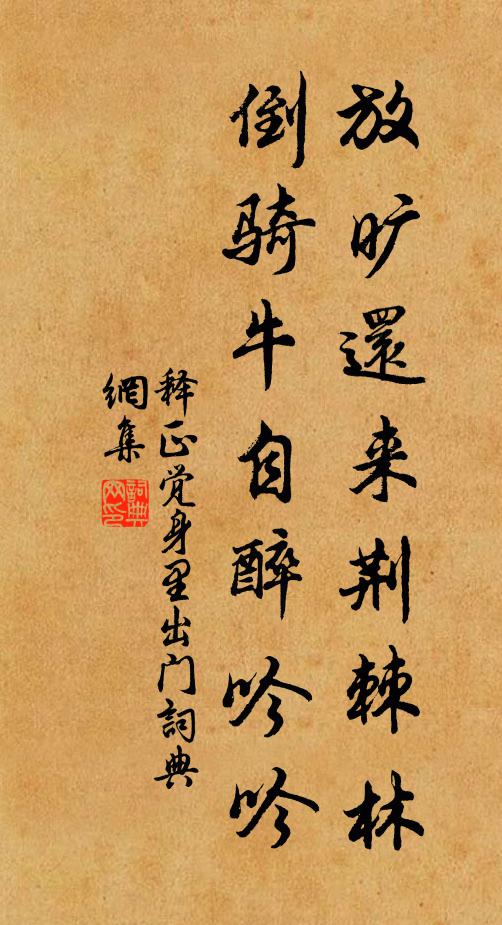 放旷還来荆棘林
倒骑牛自醉吟吟
释正觉身里出门詞典
網集
詞典網印